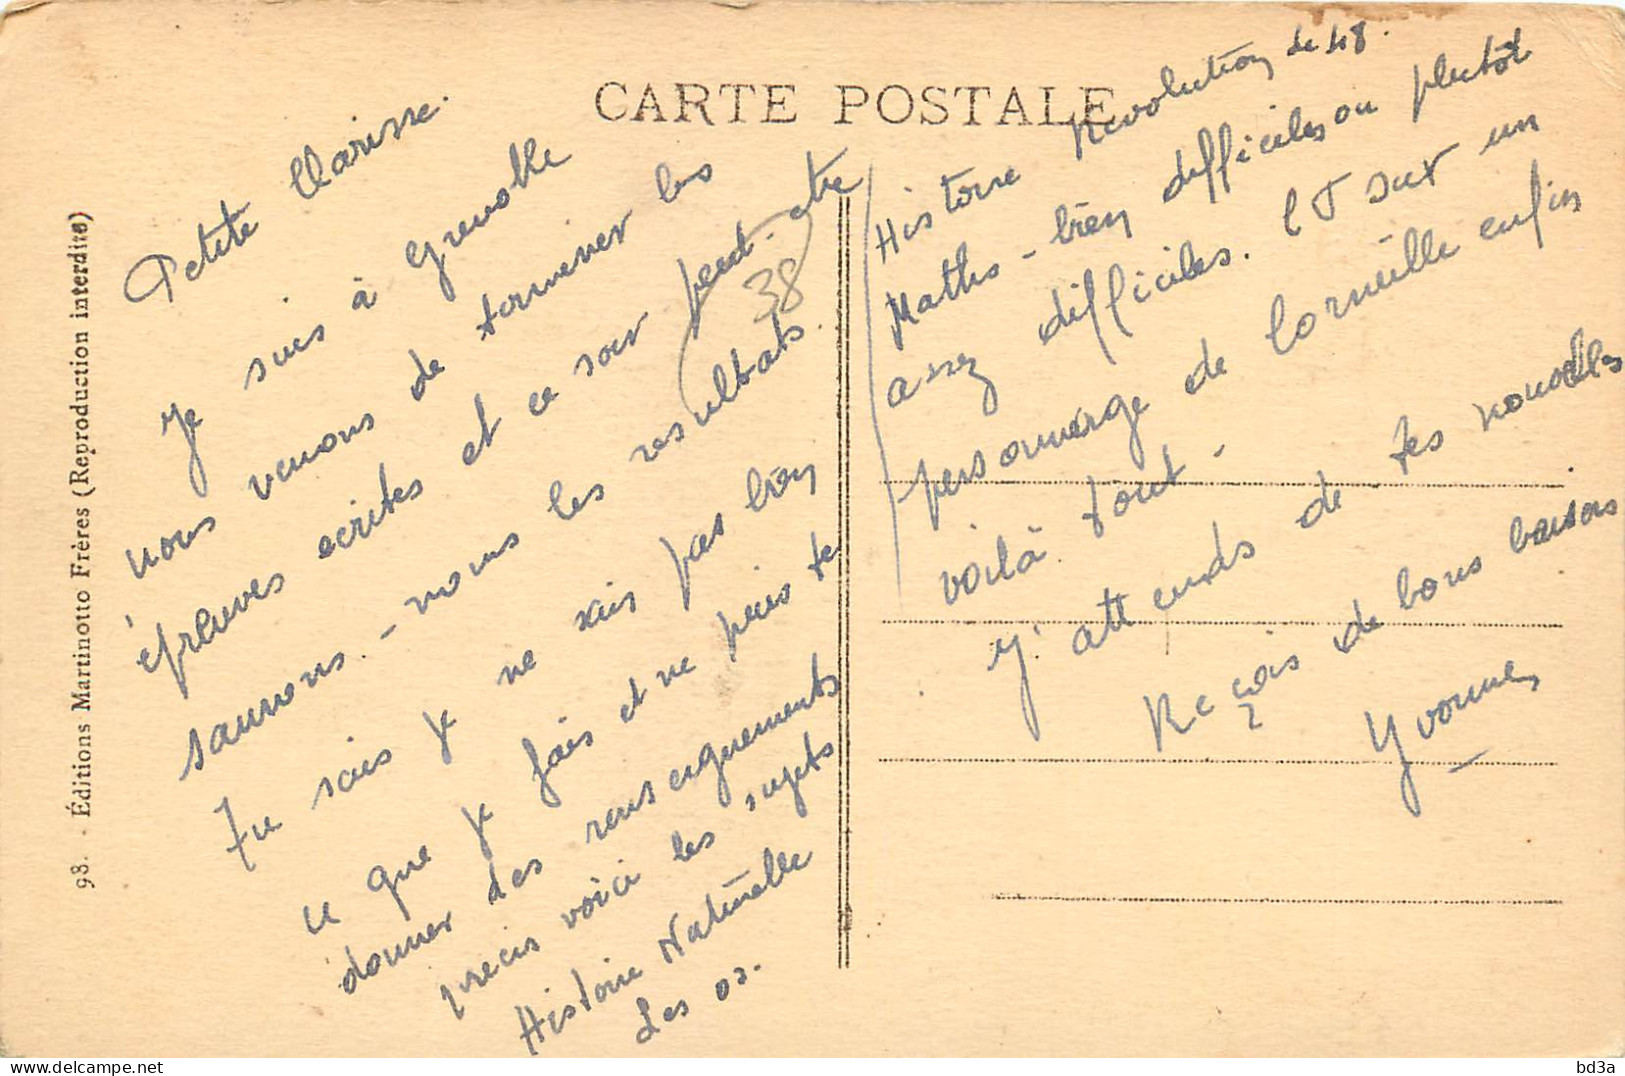 CARTE POSTALE
98. - Éditions Martinotto Frères (Reproduction interdite)
Petite Clarisse.
Je suis à Grenoble
nous venons de terminer les
épreuves écrites et ce soir peut-être
saurons-nous les resultats.
Tu sais je ne sais pas bien
ce que je fais et ne puis te
donner des renseignements
precis voici les sujets
Histoire Naturelle
Les os.
38
Histoire Revolution de 48.
Maths - bien difficiles ou plutôt
assez difficiles. CF sur un
personnage de Corneille enfin
voilà tout -
J'attends de tes nouvelles
Reçois de bons baisers
Yvonne
bd3a